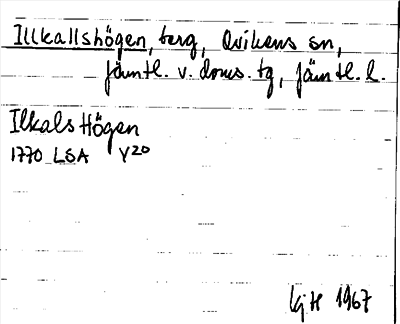 Illkallshögen, berg, Ovikens sn,
Jämtl. v. doms. tg, Jämtl. l.
Ilkals Högen
1770 LSA Y20
GH 1967